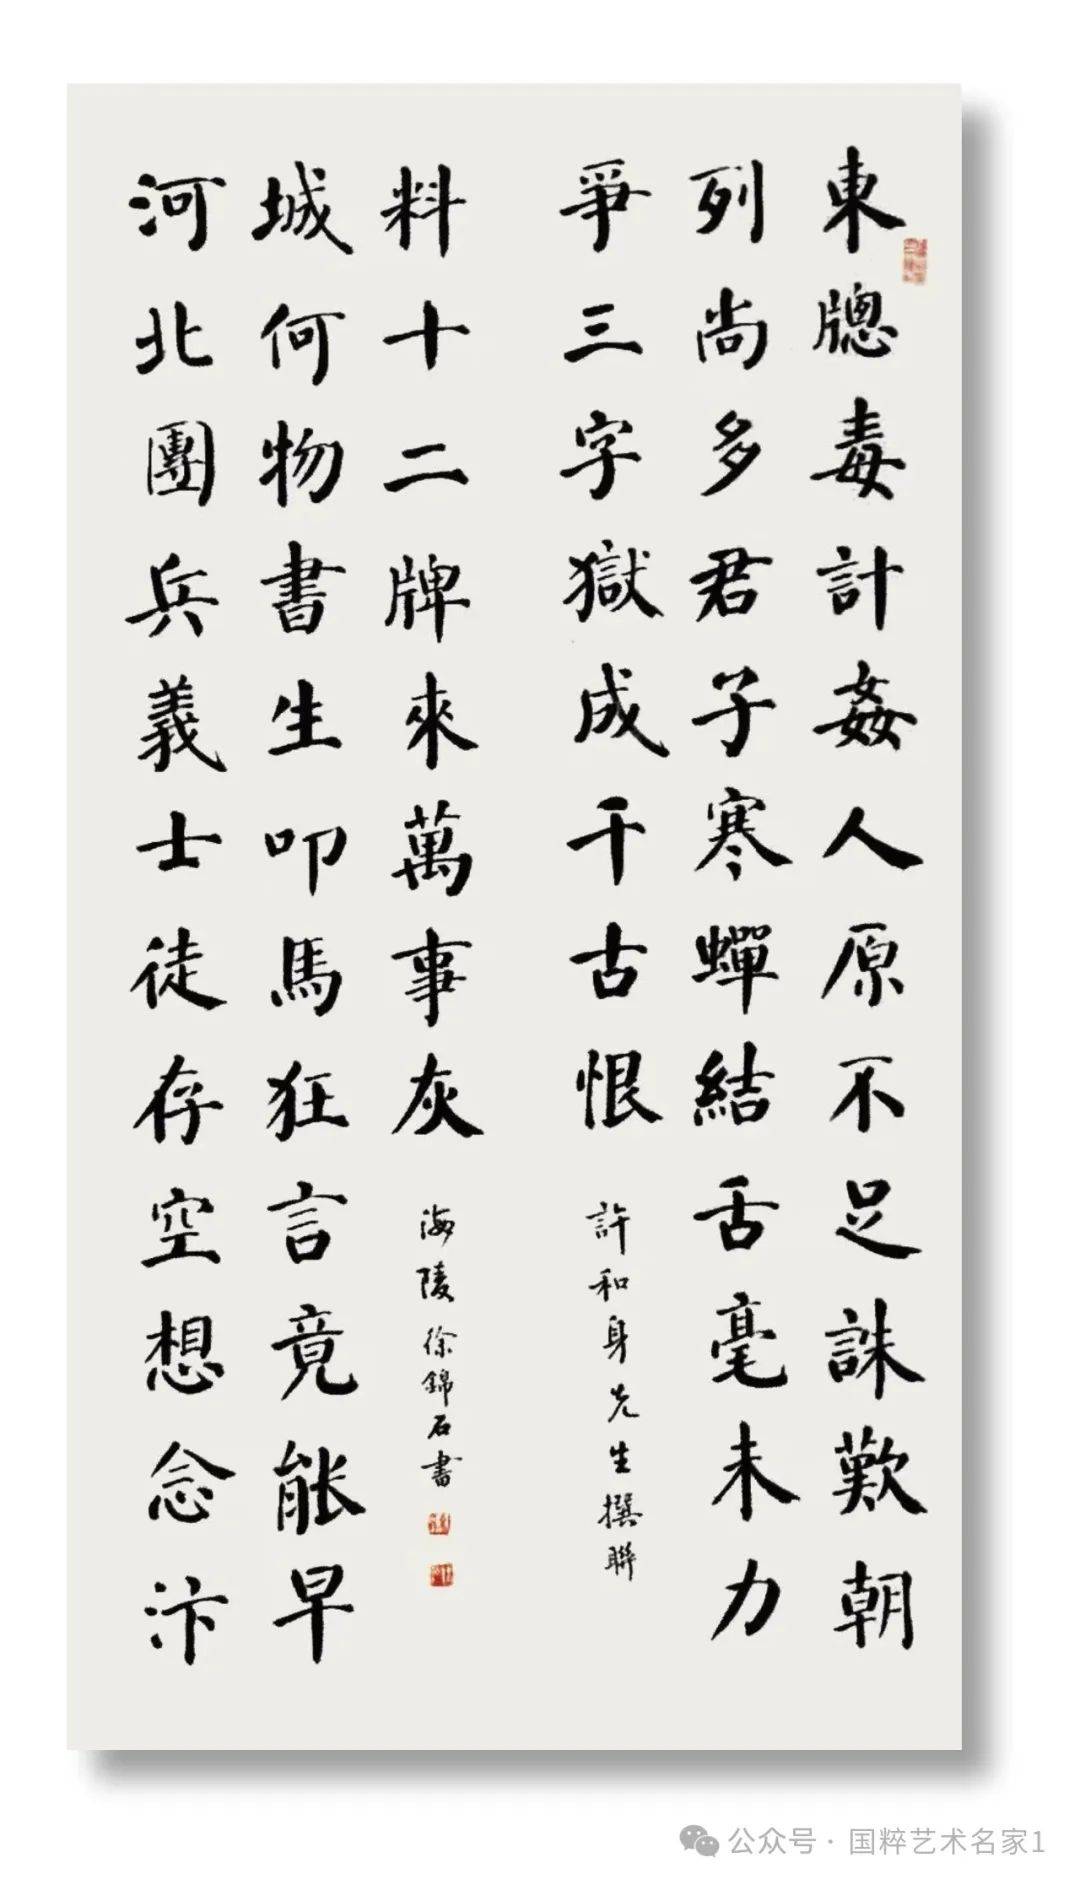 東牕毒計姦人原不足誅歎朝
列尚多君子寒蟬結舌毫未力
爭三字獄成千古恨
許和身先生撰聯
河北團兵義士徒存空想念汴
城何物書生叩馬狂言竟能早
料十二牌來萬事灰
海陵徐錦石書
公众号·国粹艺术名家1